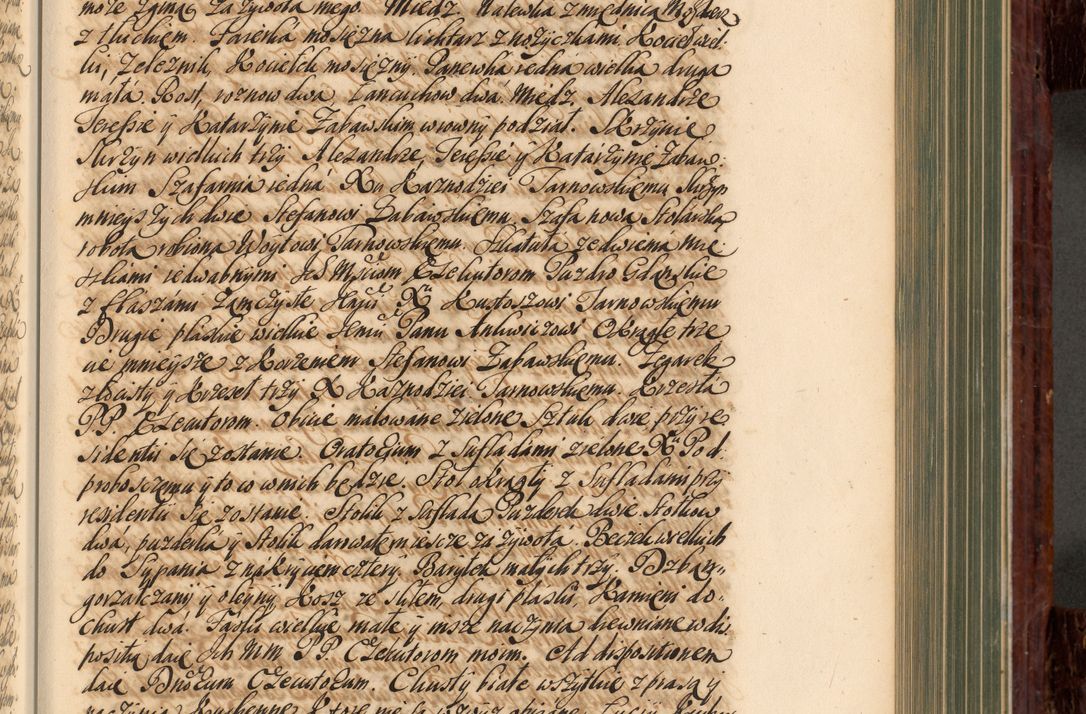 może zginą za żywota mego. Miedz Nalewka z miednicą Mozderz
z tłuczkiem. Faierka mosiężna lichtarz z nożyczkami Kocieł wiel-
ki, Zeleznik, Kociełek mosiężny. Panewka iedna wielka druga
mała. Rost, roznow dwa Łancuchow dwa. Miedz, Alexandrze
Teressie y Katarzynie Zabawskim wrowny podział. Skrzynie
Skrzyn wielkich trzy Alexandrze, Teressie y Katarzynie Zabaw-
skim Szafarnia iedná X. Kaznodziei Tarnowskiemu Skrzyn
mnieyszych dwie Stefanowi Zabawskiemu. Szafa nowa Stolarska
robota robiona Woytowi Tarnowskiemu. Szkatuła ze dwiema mie
szkami iedwabnymi Ich Mściom Exekutorom Puzdro Gdanskie
z flaszami Zamczyste X. Kustoszowi Tarnowskiemu
Drugie płaskie wielkie Jemu Panu Ankwiczowi Okrągłe trze
cie mnieysze z Korzeniem Stefanowi Zabawskiemu. Zegarek
złocisty y Krzeseł trzy X. Kaznodziei Tarnowskiemu. Krzesła
PP. Exekutorom. Obicie malowane zielone Sztuk dwie przy re-
sidentii się zostanie. Oratorium z Szufladami zielone X. Pod-
proboszczemu y to co w nich będzie. Stoł okrągły z Szufladami przy
residentii się zostanie. Stolik z Szuflada Puzderek dwie Stolikow
dwá, puzderka y Stolik darowałem ieszcze za żywotá. Beczek wielkich
do Sypania z nakryciem cztery. Baryłek małych trzy. Dzban-
gorzałczany y oleyny, Kosz ze skłem, drugi płaski, Kamieni do-
chust dwá. Faski wielkie małe y insze naczynia drewniane w dis-
positią daię Ich Mm PP Exekutorom moim. Ad dispositionem
daię Dnorum Exekutorum. Chusty białe wszytkie z prasą y
naczynia Kuchenne